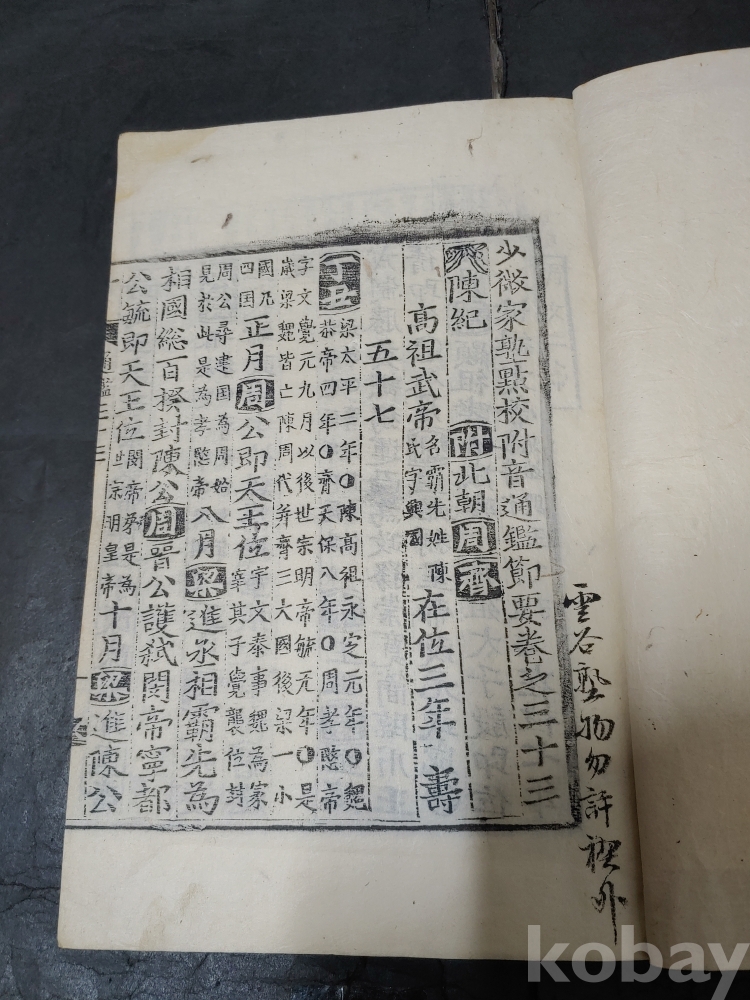 少微家塾點校附音通鑑節要卷之三十三
陳紀 附 北朝 周 齊
高祖武帝 名霸先姓陳氏字興國 在位三年 壽
五十七
丁丑 梁太平二年○陳高祖永定元年○魏恭帝四年○齊天保八年○周孝愍帝
宇文覺元九月以後世宗明帝毓元年○是歲梁魏皆亡陳周代并齊三大國後梁一小
國凡四国 正月 周 公即天王位 宇文泰事魏為冢宰其子覺襲位封
周公尋建国為周始見於此是為孝愍帝 八月 梁 進丞相霸先為
相國総百揆封陳公 周 晉公護弑閔帝寧都
公毓即天王位 閔帝弟是為世宗明皇帝 十月 梁 進陳公
通鑑三十三
雲谷塾物勿許裡外
kobay